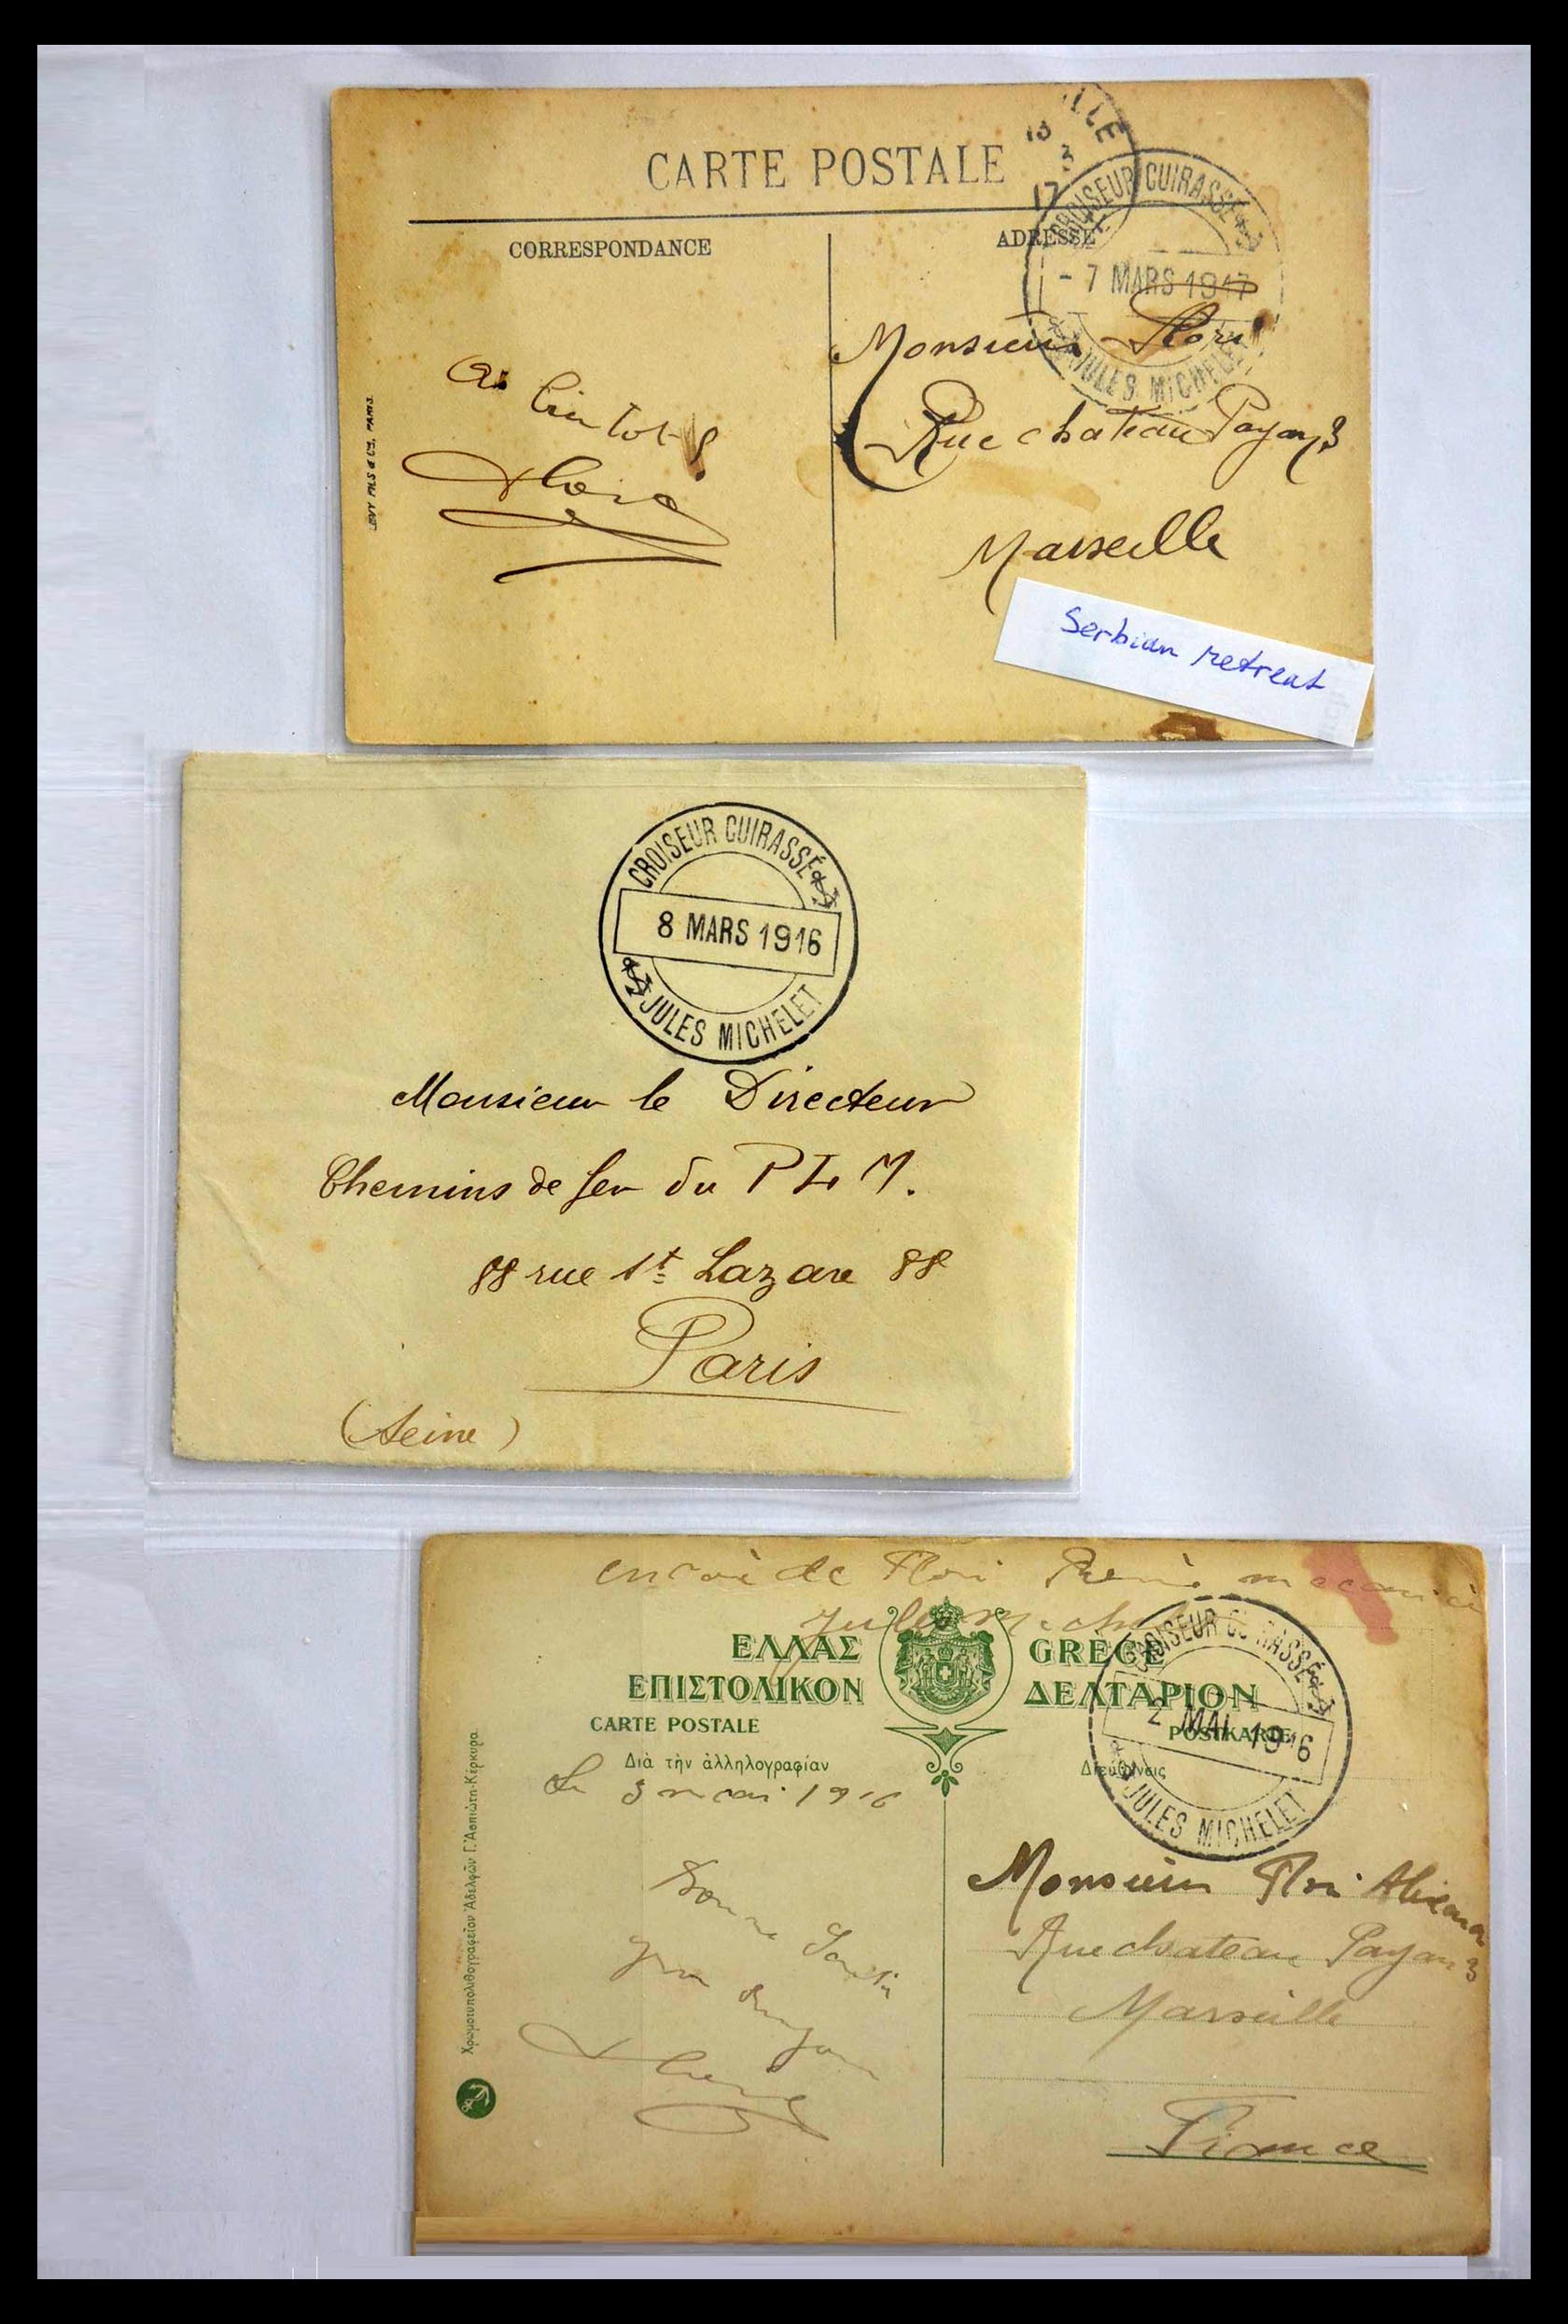 CARTE POSTALE
ILLE
13
3
17
CROISEUR CUIRASSÉ
- 7 MARS 1917
JULES MICHELET
CORRESPONDANCE
ADRESSE
Monsieur Flori
Rue chateau Payan 3
Marseille
a bientot
LEVY FILS & Cie, PARIS
Serbian retreat
CROISEUR CUIRASSÉ
8 MARS 1916
JULES MICHELET
Monsieur le Directeur
Chemins de fer du P L M.
88 rue St Lazare 88
Paris
(Seine)
envoi de Flori
Jules Mich
ΕΛΛΑΣ GRECE
ΕΠΙΣΤΟΛΙΚΟΝ ΔΕΛΤΑΡΙΟΝ
CARTE POSTALE POSTKARTE
Διὰ τὴν ἀλληλογραφίαν Διεύθυνσις
CROISEUR CUIRASSÉ
2 MAI 1916
JULES MICHELET
Le 3 mai 1916
Bonne Santé
Monsieur Flori
Rue chateau Payan 3
Marseille
France
Χρωμοτυπολιθογραφεῖον Ἀδελφῶν Γ. Ἀσπιώτη-Κέρκυρα